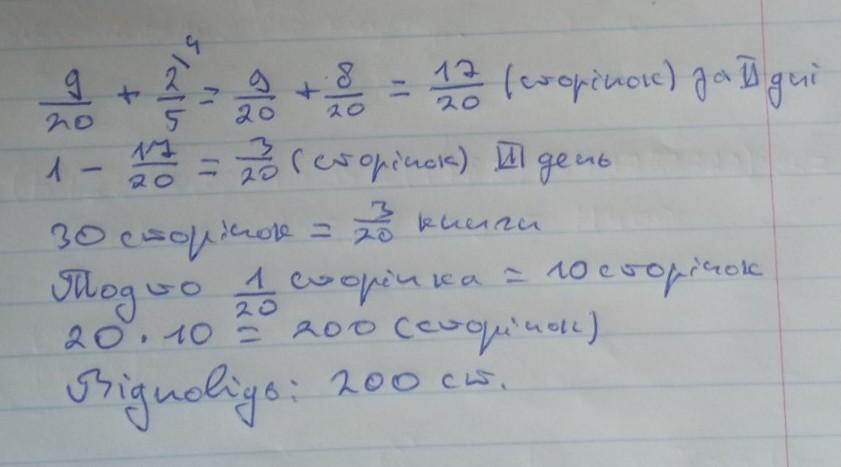 9/20 + 2\4/5 = 9/20 + 8/20 = 17/20 (сторінок) за II дні
1 - 17/20 = 3/20 (сторінок) III день
30 сторінок = 3/20 книги
Тобто 1/20 сторінка = 10 сторінок
20 · 10 = 200 (сторінок)
Відповідь: 200 ст.